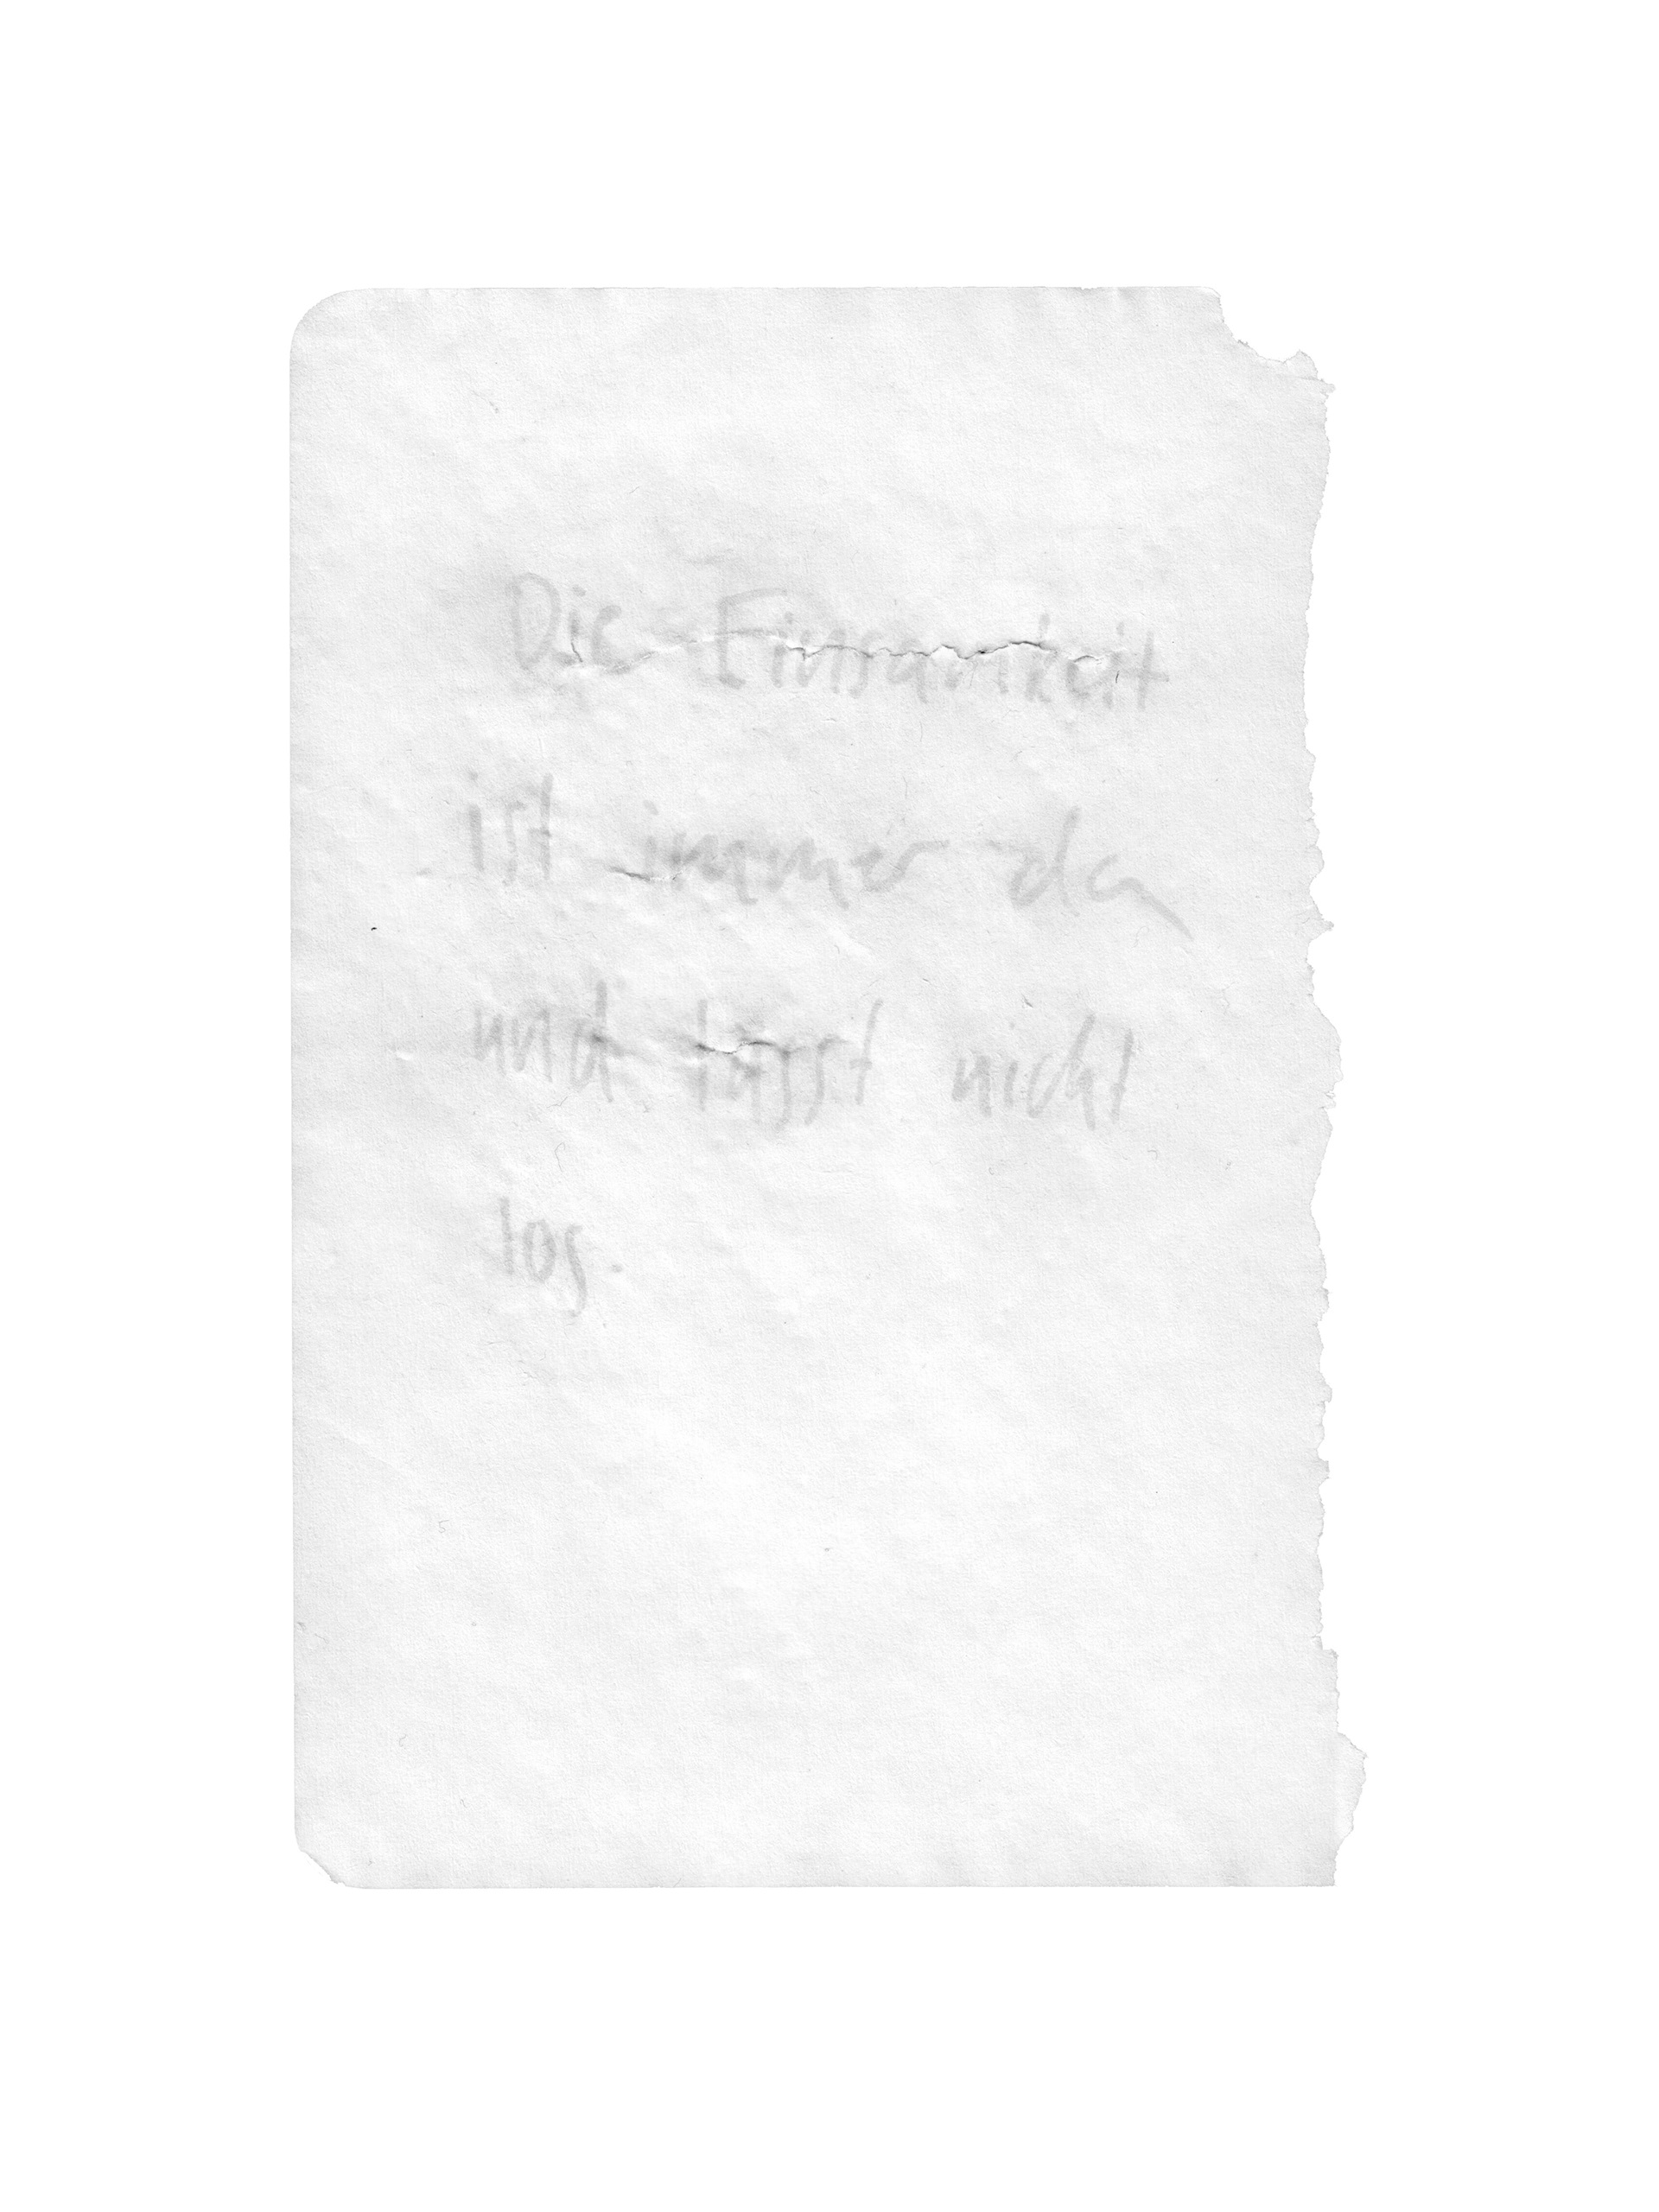 Die Einsamkeit
ist immer da
und lässt nicht
los.